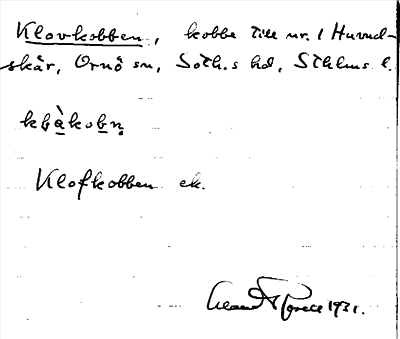 Klovkobben, kobbe till nr. 1 Huvud-
skär, Ornö sn, Soth.s hd, Sthlms l.
Klofkobben ek.
1931.